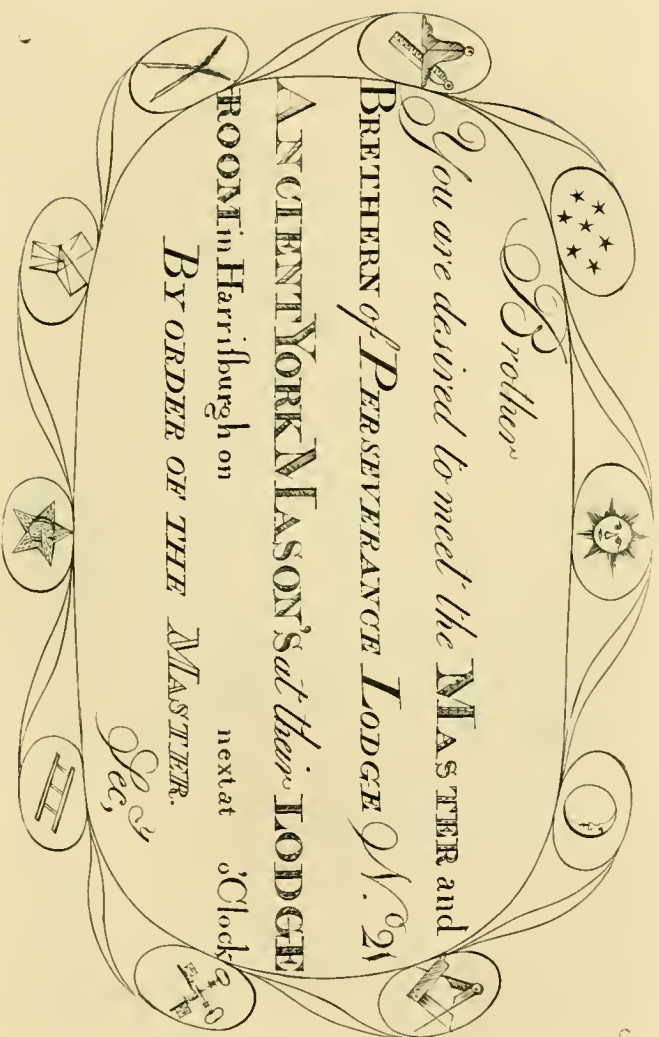 Brother
You are desired to meet the MASTER and
BRETHERN of PERSEVERANCE LODGE N.º 21
ANCIENT YORK MASON'S at their LODGE
ROOM in Harriſburgh on next at o'Clock
BY ORDER OF THE MASTER.
Secy,